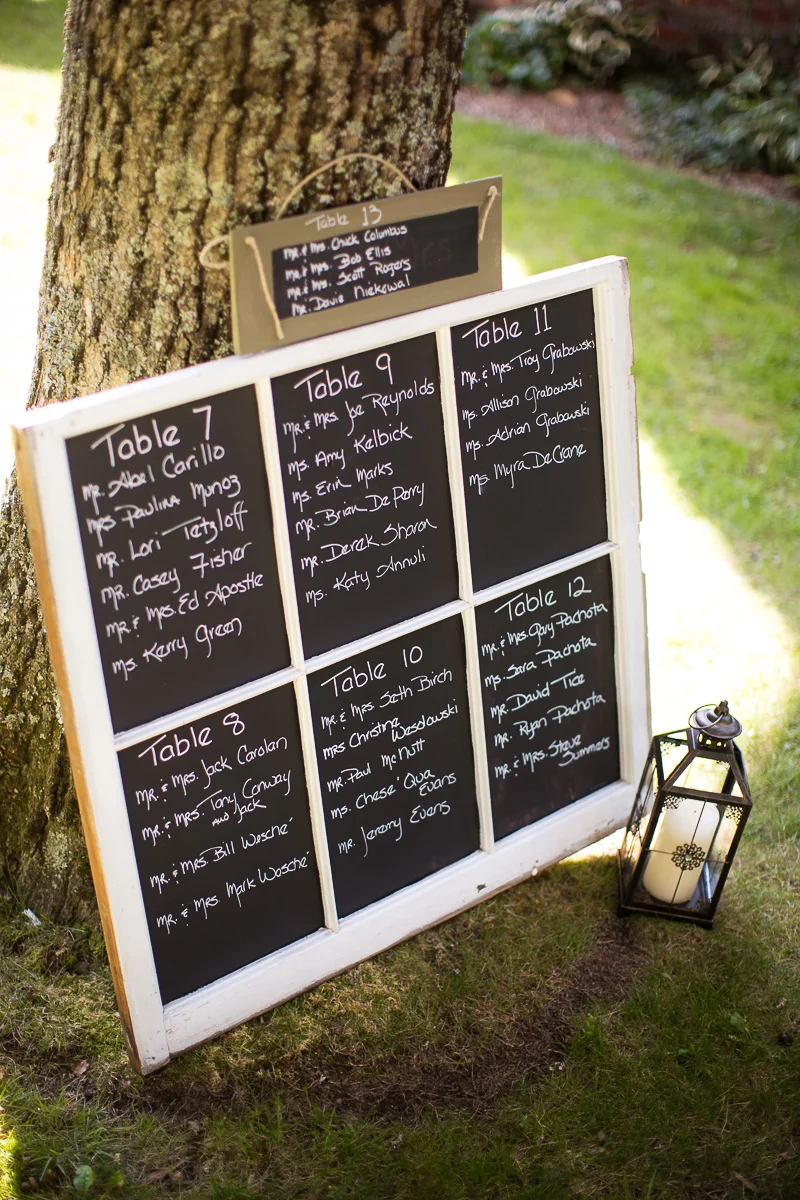 Table 13
Mr. & Mrs. Chuck Columbus
Mr. & Mrs. Bob Ellis
Mr. & Mrs. Scott Rogers
Mr. Davie Niekowal
Table 7
Mr. Abel Carillo
Mrs Paulina Munoz
Mr. Lori Tetzloff
Mr. Casey Fisher
Mr. & Mrs. Ed Apostle
Ms. Kerry Green
Table 8
Mr. & Mrs. Jack Carolan
Mr. & Mrs. Tony Conway
AND Jack
Mr. & Mrs. Bill Wesché
Mr. & Mrs. Mark Wasché
Table 9
Mr. & Mrs Joe Reynolds
Ms. Amy Kelbick
Ms. Erin Marks
Mr. Brian De Perry
Mr. Derek Sharon
Ms. Katy Annuli
Table 10
Mr. & Mrs. Seth Birch
Mrs Christine
Wesolowski
Mr. Paul McNutt
Ms. Chese' Qua
Evans
Mr. Jeremy Evans
Table 11
Mr. & Mrs. Troy Grabowski
Ms. Allison Grabowski
Ms. Adrian Grabowski
Ms. Myra DeCrane
Table 12
Mr. & Mrs. Gary Pachota
Ms. Sara Pachota
Mr. David Tice
Mr. Ryan Pachota
Mr. & Mrs. Steve
Summers